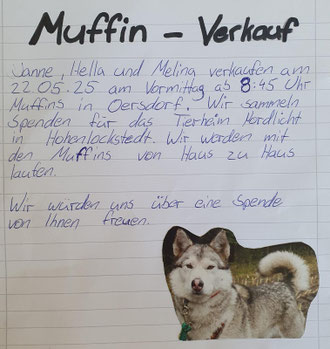 Muffin - Verkauf
Janne, Hella und Melina verkaufen am
22.05.25 am Vormittag ab 8:45 Uhr
Muffins in Oersdorf. Wir sammeln
Spenden für das Tierheim Nordlicht
in Hohenlockstedt. Wir werden mit
den Muffins von Haus zu Haus
laufen.
Wir würden uns über eine Spende
von Ihnen freuen.